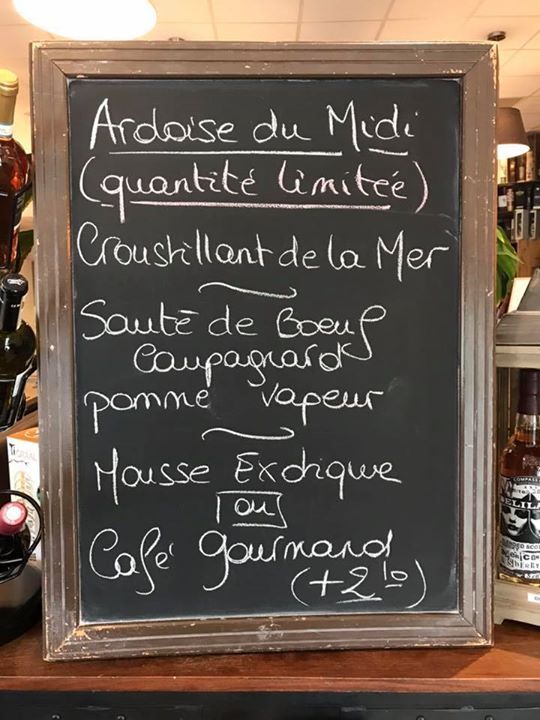 Ardoise du Midi
(quantité limitée)
Croustillant de la Mer
Sauté de Boeuf
Campagnard
pomme vapeur
Mousse Exotique
ou
Café gourmand
(+2 
COMPASS
DELILAH